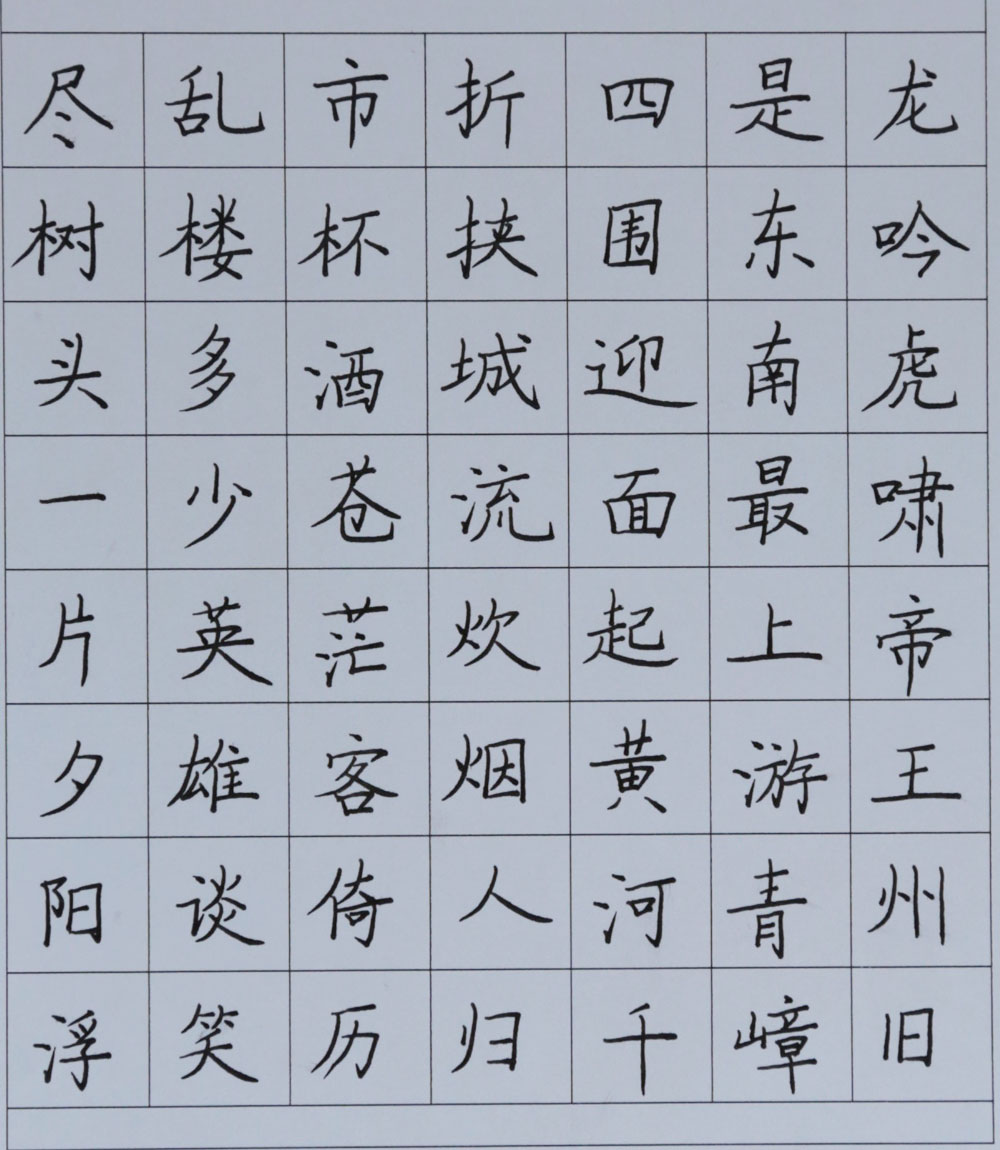 龙吟虎啸帝王州旧
是东南最上游青嶂
四围迎面起黄河千
折挟城流炊烟人归
市杯酒苍茫客倚历
乱楼多少英雄谈笑
尽树头一片夕阳浮